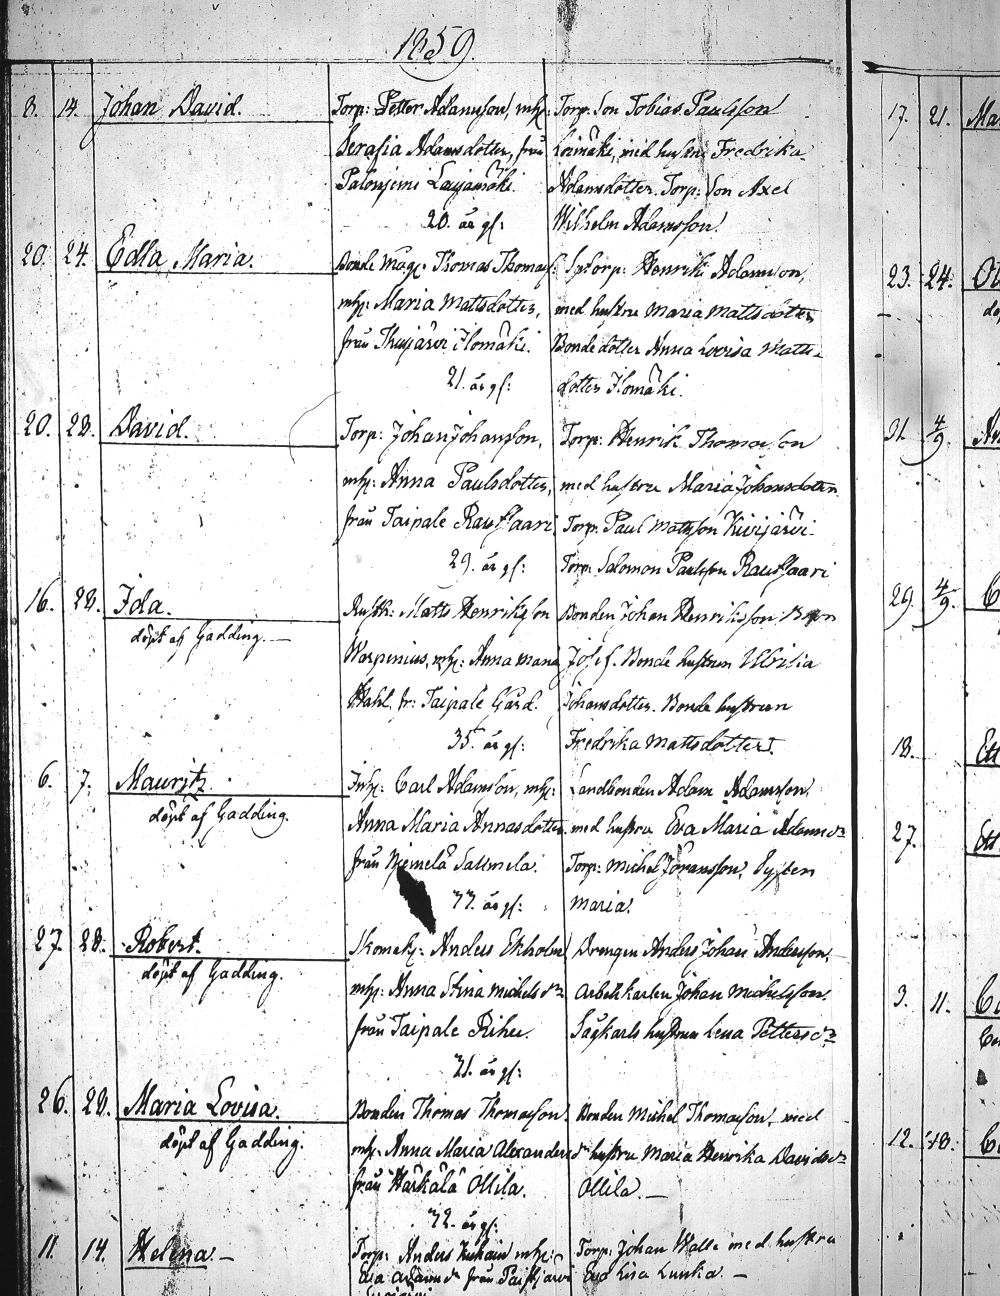 1859.
8. 14. Johan David.
Torp: Petter Adamsson, mhf.
Serafia Adamsdotter, från
Palonjemi
20. år gl:
Torp. Son Tobias Paulsson
med hustru Fredrika
Adamsdotter. Torp: Son Axel
Wilhelm Adamsson.
20. 24. Edla Maria.
Bonde Thomas Thomass:
mhf: Maria Mattsdotter,
från Ilomäki.
21. år gl:
Henrik Adamsson,
med hustru Maria Mattsdotter
Bondedotter Anna Lovisa Matts-
dotter Ilomäki.
20. 28. David.
Torp: Johan Johansson,
mhf: Anna Paulsdotter,
från Taipale
29. år gl:
Torp: Henrik Thomasson
med hustru Maria Johansdotter
Torp: Paul Mattsson Kivijärvi.
Torp: Salomon Paulsson
16. 28. Ida.
döpt af Gadding. —
Rustk: Matts Henriksson
Warpenius, mhf: Anna Maria
Stahl, fr: Taipale Gård.
35. år gl:
Bonden Johan Henriksson
Josef. Bonde hustrun Ulrika
Johansdotter. Bonde hustrun
Fredrika Mattsdotter.
6. 7. Mauritz.
döpt af Gadding.
Inh: Carl Adamsson, mhf:
Anna Maria Annasdotter
från Niemelä Salmela.
37. år gl:
Landbonden Adam Adamsson
med hustru Eva Maria Adamsdr
Torp: Michel Göransson, Pigan
Maria.
27. 28. Robert.
döpt af Gadding.
Skomak: Anders Ekholm
mhf: Anna Stina Michelsdr
från Taipale Rihu.
31. år gl:
Drengen Anders Johan Andersson.
Arbetskarlen Johan Michelsson.
Sågkarls hustrun Lena Pettersdr
26. 28. Maria Lovisa.
döpt af Gadding.
Bonden Thomas Thomasson.
mhf: Anna Maria Alexandersdr
från Härkälä Ollila.
32. år gl:
Bonden Michel Thomasson, med
hustru Maria Henrika Davidsdr
Ollila. —
11. 14. Helena. —
Torp: Anders mhf:
Eva Adamsdr från
Torp: Johan Walle med hustru
Eva Lisa —
17. 21. Ma
23. 24. Ot
31. 4/9.
29. 4/9.
18. Ett
27. Ett
3. 11.
12. 18.